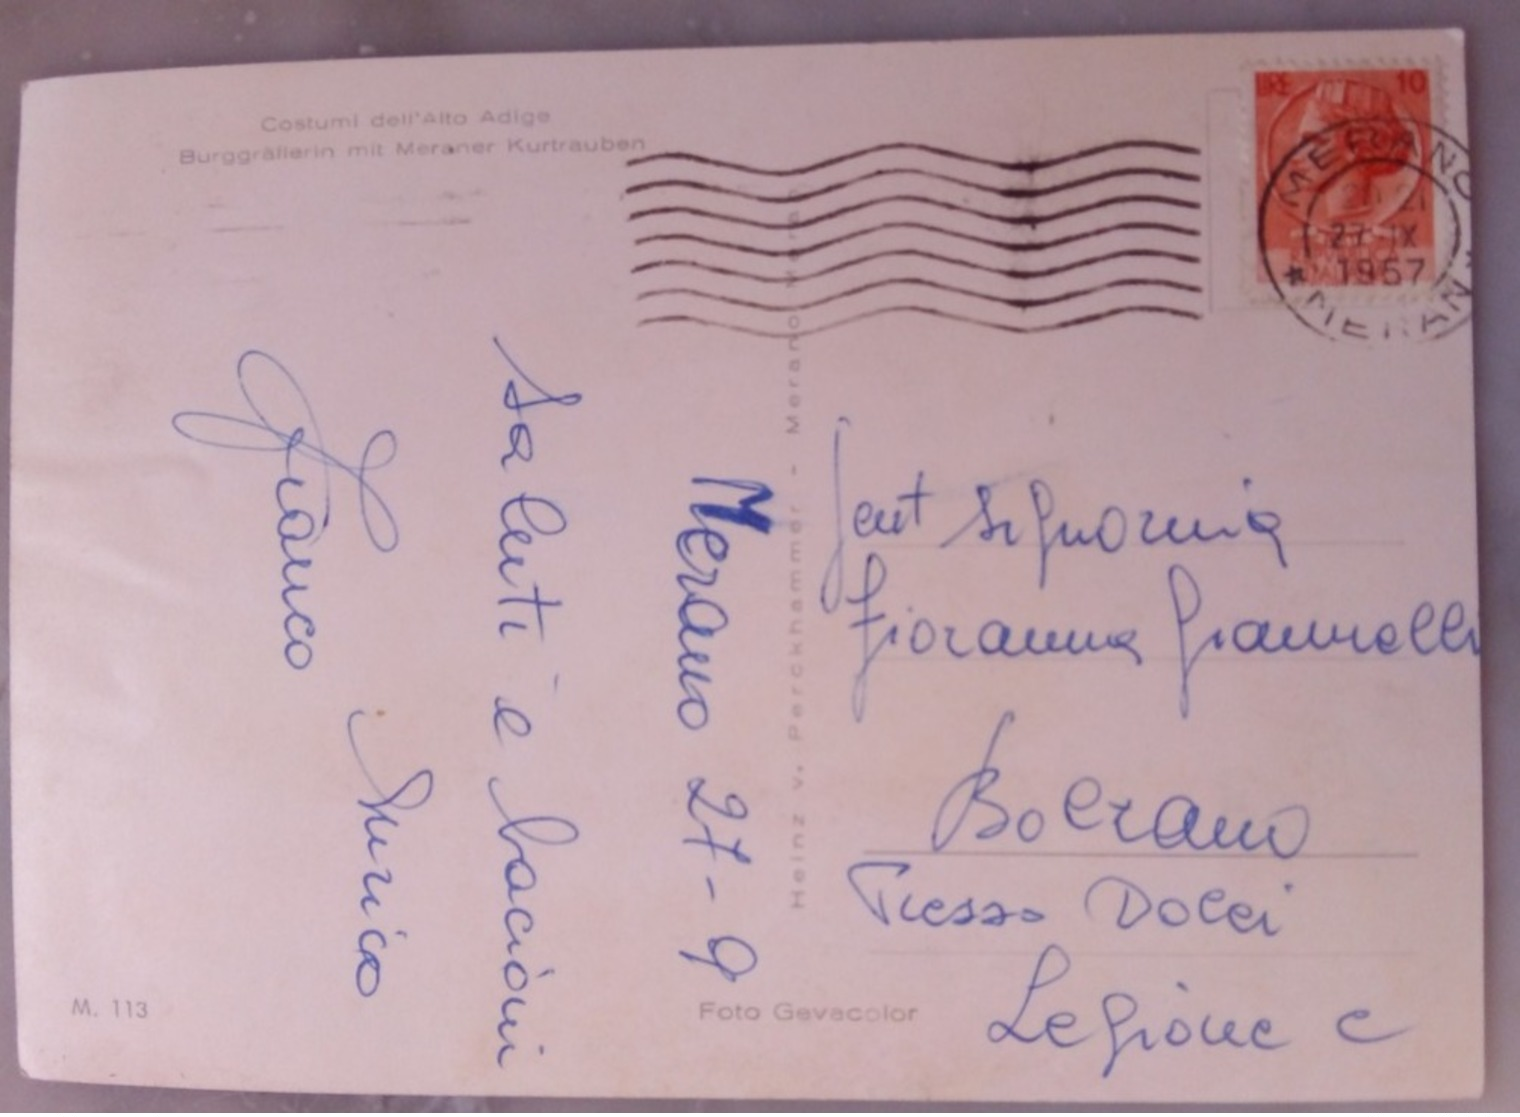 Costumi dell'Alto Adige
Burggräflerin mit Meraner Kurtrauben
10
MERANO
27 IX
1957
* MERAN
Merano 27-9
Saluti e bacioni
Enrico
Franco
Heinz v. Perckhammer - Merano-Meran
Gent Signorina
Giovanna Giannelli
Bolzano
Presso Dolci
Legione C
M. 113
Foto Gevacolor